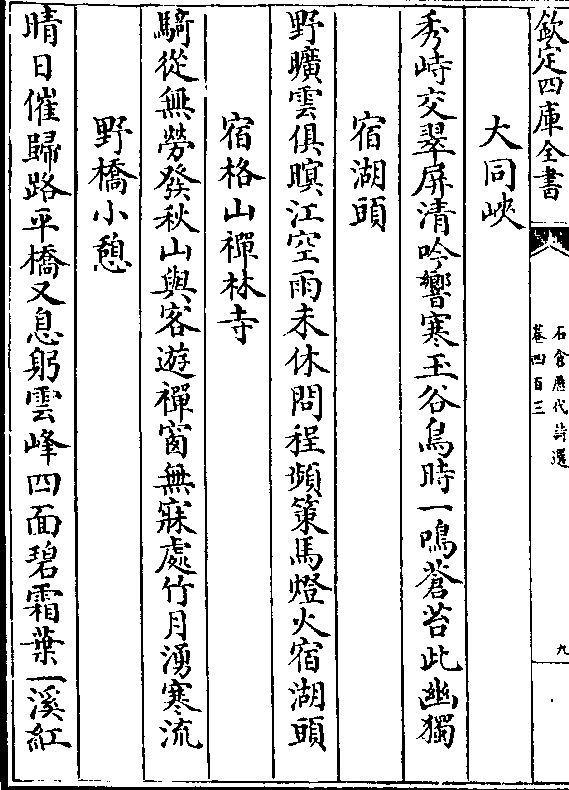 欽定四庫全書
石倉歷代詩選
卷四百三
九
大同峽
秀峙交翠屏清吟響寒玉谷鳥時一鳴蒼苔此幽獨
宿湖頭
野曠雲俱暝江空雨未休問程頻策馬燈火宿湖頭
宿格山禪林寺
騎從無勞發秋山與客遊禪窗無寐處竹月湧寒流
野橋小憩
晴日催歸路平橋又息躬雲峰四面碧霜葉一溪紅